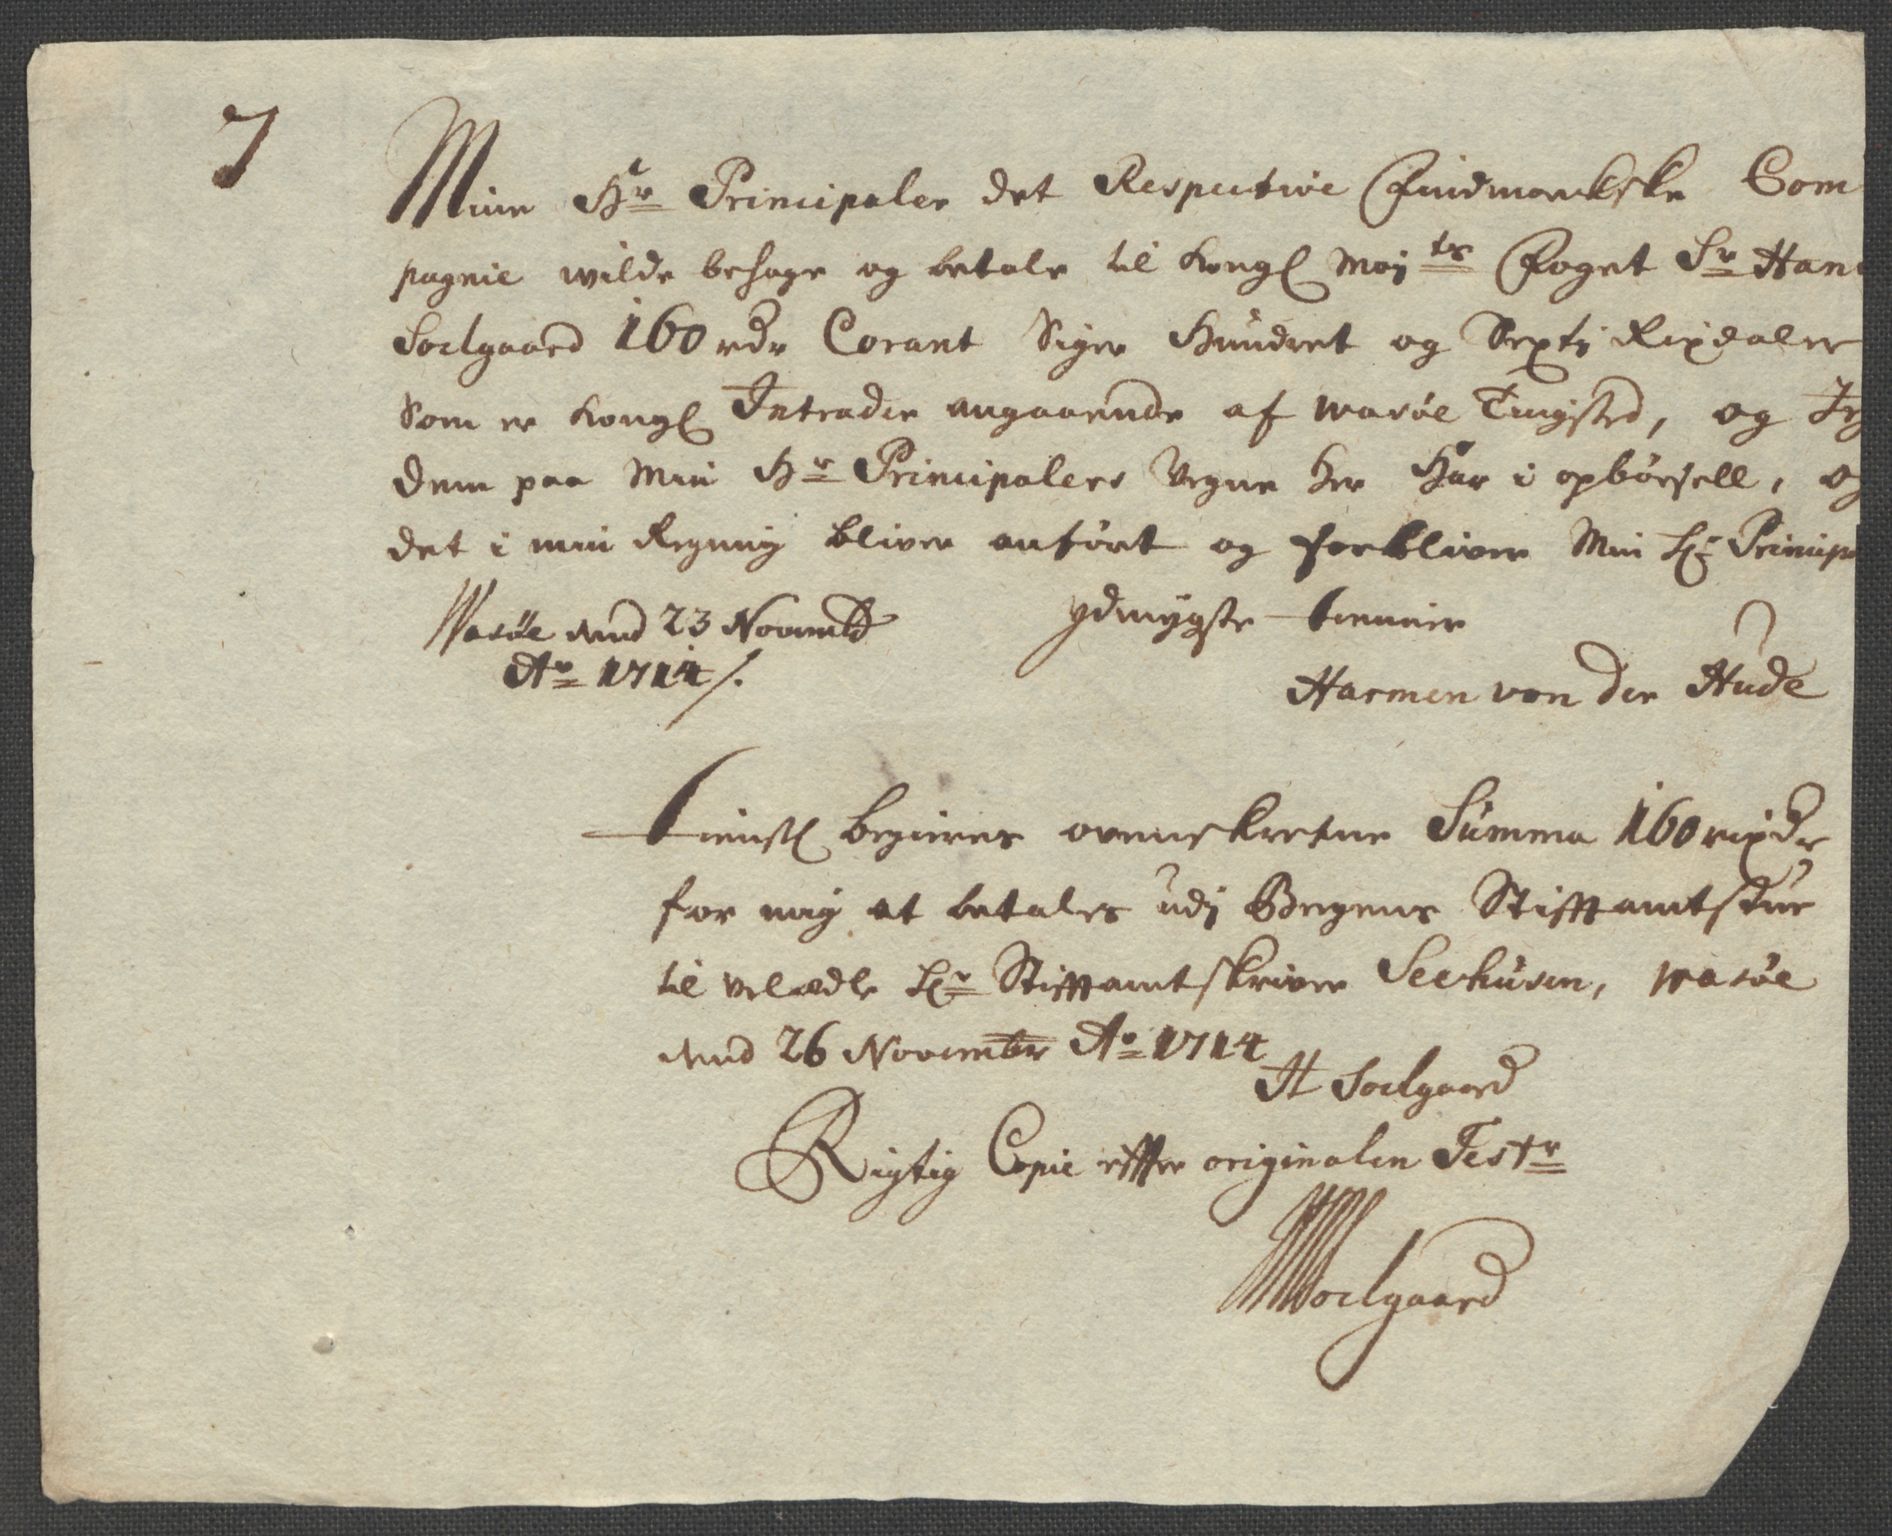 7
Mine Hr Principaler det Respective Findmarckske Com
pagnie wilde behage og betale til Kongl Maj ts Foget Sr Han
Soelgaard 160 rdr Corant Siger Hundret og Sexti Rixdaler
Som er Kongl Intrader angaaende af Masöe Tingsted, og Jeg
dem paa Min Hr Principalers Vegne her Har i opbörsell, og
det i min Regning bliver anfört og forbliver Min Hr Princip
Masöe dend 23 Novembr
Ao 1714 /.
ydmygste tienner
Harmen von der Hude
tienstl begieres ovenskrefne Summa 160 rixdr
for mig at betales udj Bergens Stifftamtstue
til velædle Hr Stifftamtskriver Seehusen, Masöe
dend 26 Novembr Ao 1714
H Soelgaard
Rigtig Copie effter originalen Testr
HSoelgaard